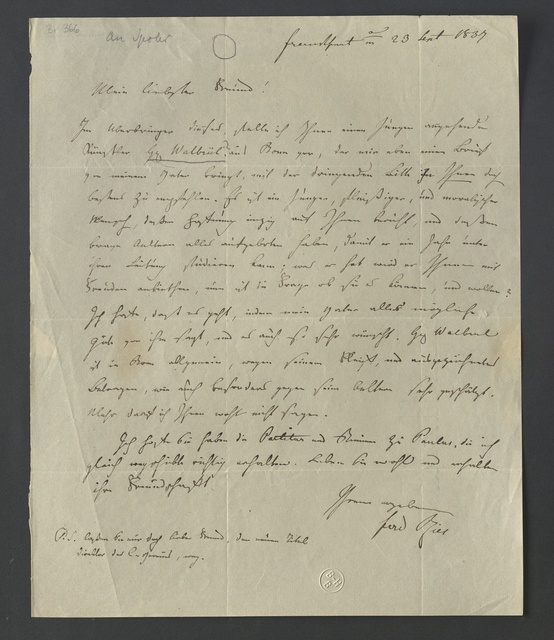 An Spohr
Frankfurt a/m 23 Oct 1837
Mein liebster Freund!
Im Ueberbringer dieses, stelle ich Ihnen einen jungen angehenden
Künstler H. Walbrül aus Bonn vor, der mir eben einen Brief
von meinem Vater bringt, mit der dringenden Bitte ihn Ihnen doch
bestens zu empfehlen. Es ist ein junger, fleißiger, und moralischer
Mensch, dessen Hoffnung einzig auf Ihnen beruht, und dessen
brave Aeltern alles aufgeboten haben, damit er ein Jahr unter
ihrer Leitung studieren kann; was er hat wird er Ihnen mit
Freuden anbiethen, nun ist die Frage ob sie es können, und wollen?
Ich hoffe, daß es geht, indem mein Vater alles mögliche
Gute von ihm sagt, und es auch so sehr wünscht. H. Walbrül
ist in Bonn allgemein, wegen seinem Fleiß, und ausgezeichneten
Betragen, wie auch besonders gegen seine Aeltern sehr geschätzt.
Mehr darf ich Ihnen wohl nicht sagen.
Ich hoffe Sie haben die Partitur und Stimmen zu Paulus, die ich
gleich wegschickte richtig erhalten. Leben Sie wohl und erhalten
ihre Freundschaft
Ihrem ergebenen
Ferd Ries
P.S. lassen Sie nur doch lieber Freund, den neuen Titel
Director des weg.